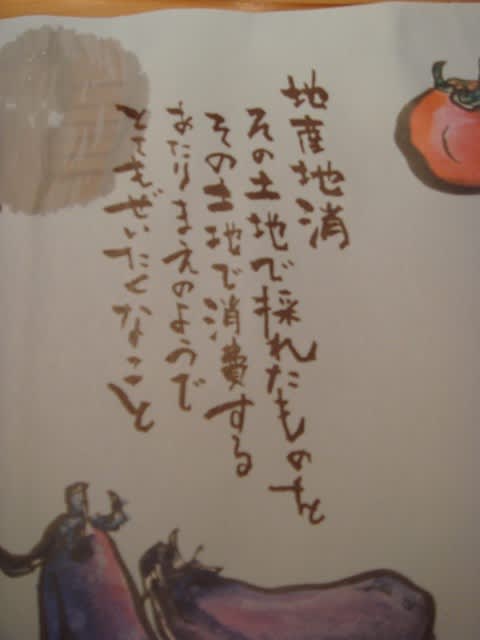 地産地消
その土地で採れたものを
その土地で消費する
あたりまえのようで
とてもぜいたくなこと